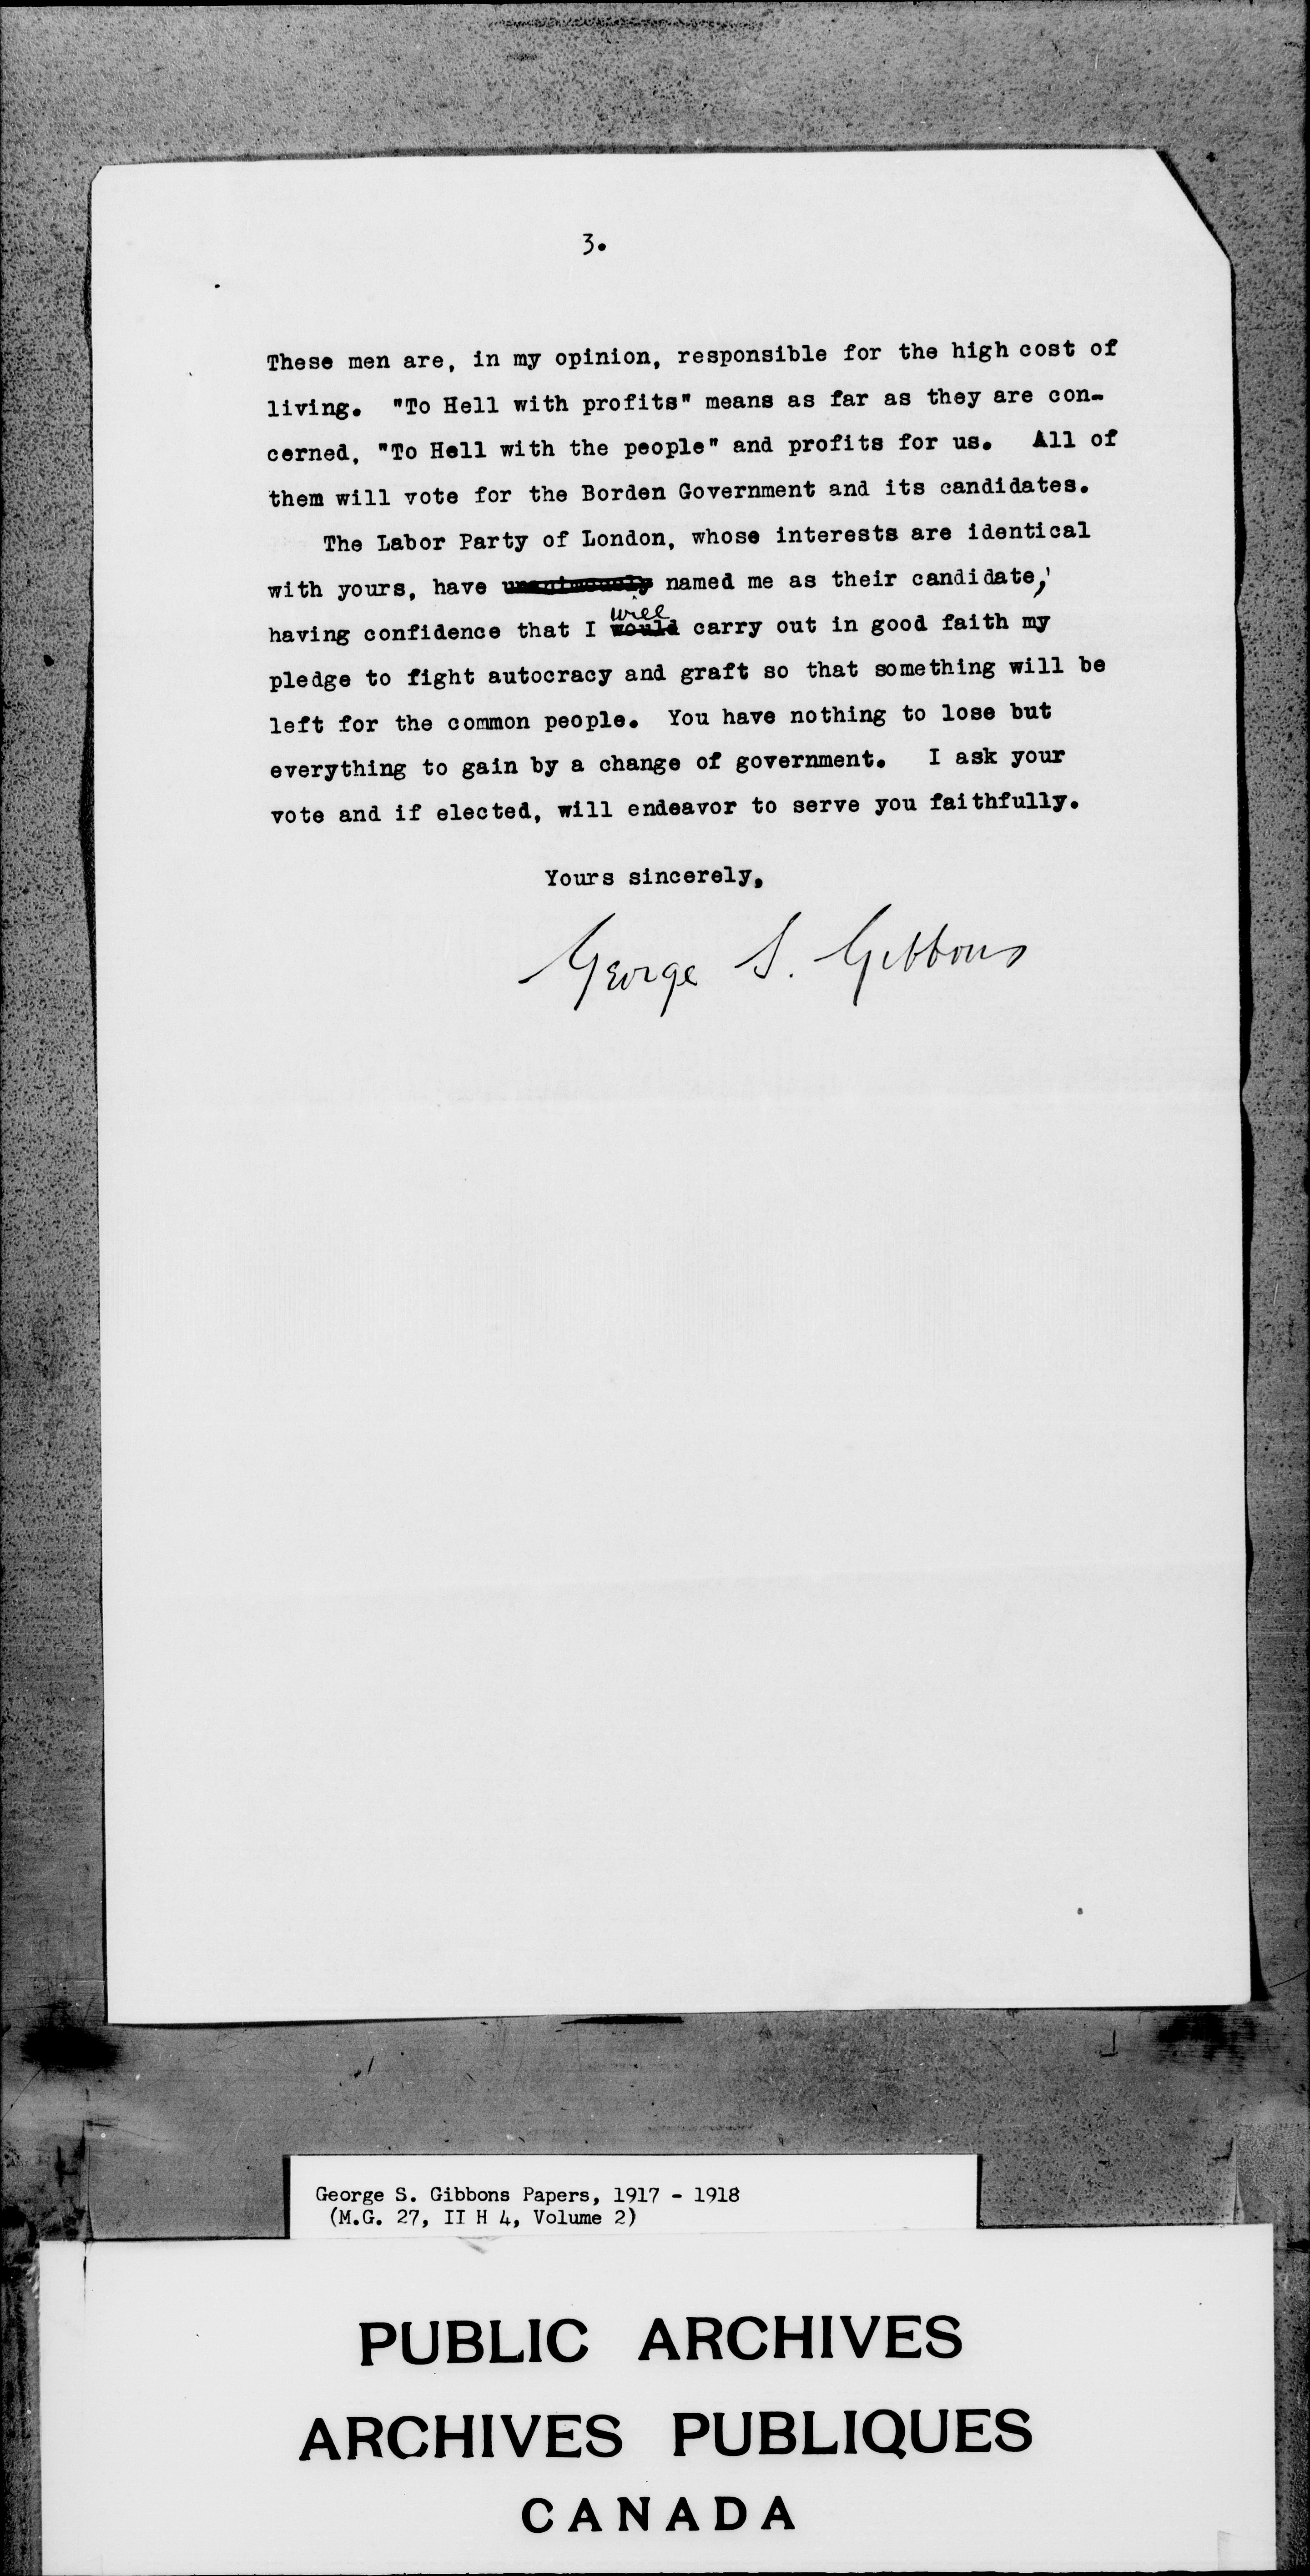 3.
These men are, in my opinion, responsible for the high cost of
living. "To Hell with profits" means as far as they are con-
cerned, "To Hell with the people" and profits for us. All of
them will vote for the Borden Government and its candidates.
The Labor Party of London, whose interests are identical
with yours, have unanimously named me as their candidate,
will
having confidence that I would carry out in good faith my
pledge to fight autocracy and graft so that something will be
left for the common people. You have nothing to lose but
everything to gain by a change of government. I ask your
vote and if elected, will endeavor to serve you faithfully.
Yours sincerely,
George S. Gibbons
George S. Gibbons Papers, 1917 - 1918
(M.G. 27, II H 4, Volume 2)
PUBLIC ARCHIVES
ARCHIVES PUBLIQUES
CANADA